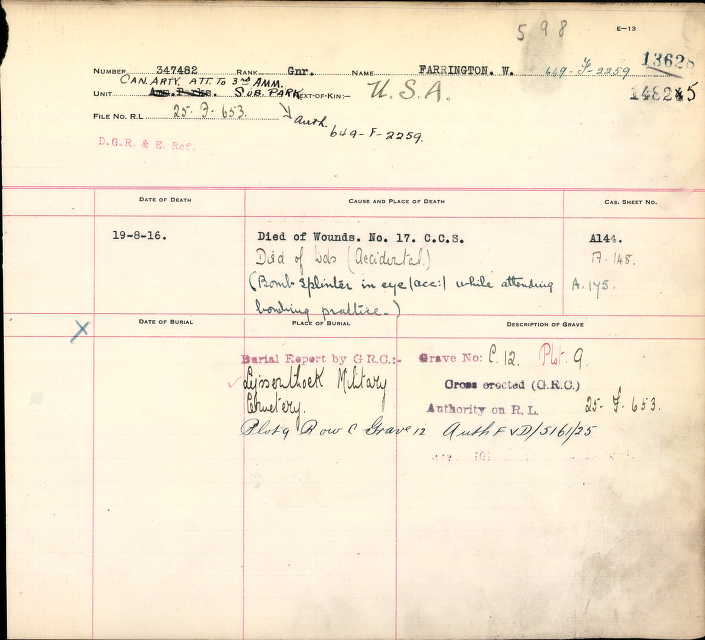 598
E-13
NUMBER 347482 RANK Gnr. NAME FARRINGTON. W. 649-F-2259 13628
CAN. ARTY. ATT. TO 3rd AMM.
UNIT Am. Parks. SUB. PARK NEXT-OF-KIN:- U.S.A. 148245
FILE NO. R.L 25-F-653. Auth.
649-F-2259.
D.G.R. & E. Ref.
DATE OF DEATH CAUSE AND PLACE OF DEATH CAS. SHEET NO.
19-8-16. Died of Wounds. No. 17. C.C.S. A144.
Died of Wds (Accidental) 148.
(Bomb splinter in eye (acc:) while attending A.175.
bombing practice.)
DATE OF BURIAL PLACE OF BURIAL DESCRIPTION OF GRAVE
X
Burial Report by G.R.C.:- Grave No: C.12. Plot. 9.
Lijssenthoek Military Cross erected (G.R.C.)
Cemetery. Authority on R.L. 25-F-653.
Plot 9 Row C Grave 12 Auth F